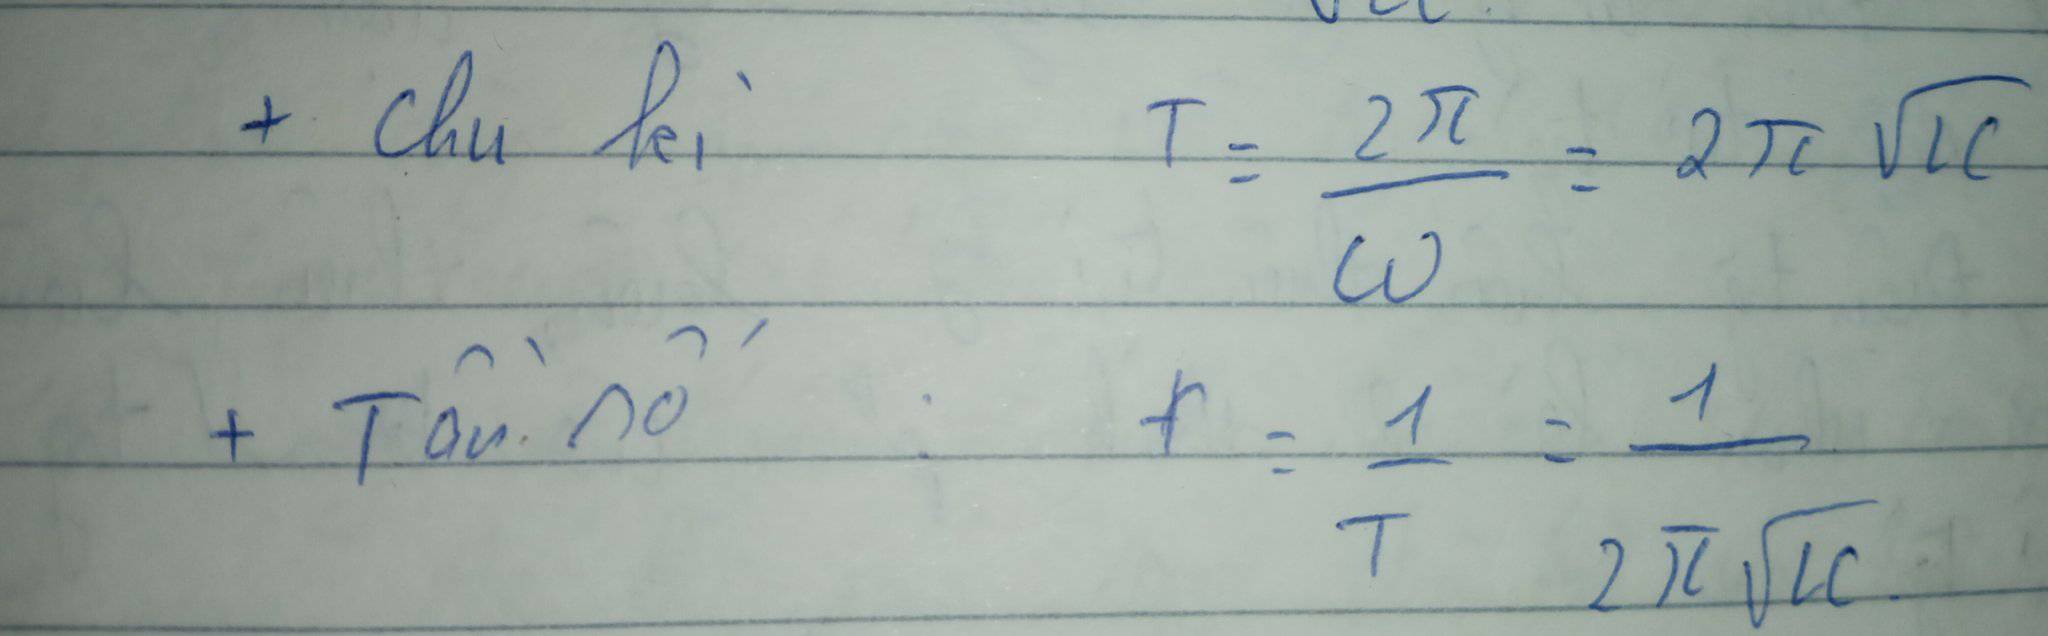 √LC.
+ Chu kì T = 2π/ω = 2π √LC
+ Tần số : f = 1/T = 1/2π √LC.